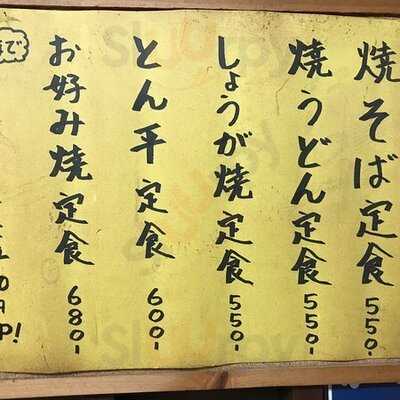 焼そば定食 550-
焼うどん定食 550-
しょうが焼定食 550-
とん平定食 600-
お好み焼定食 680-
で
P!